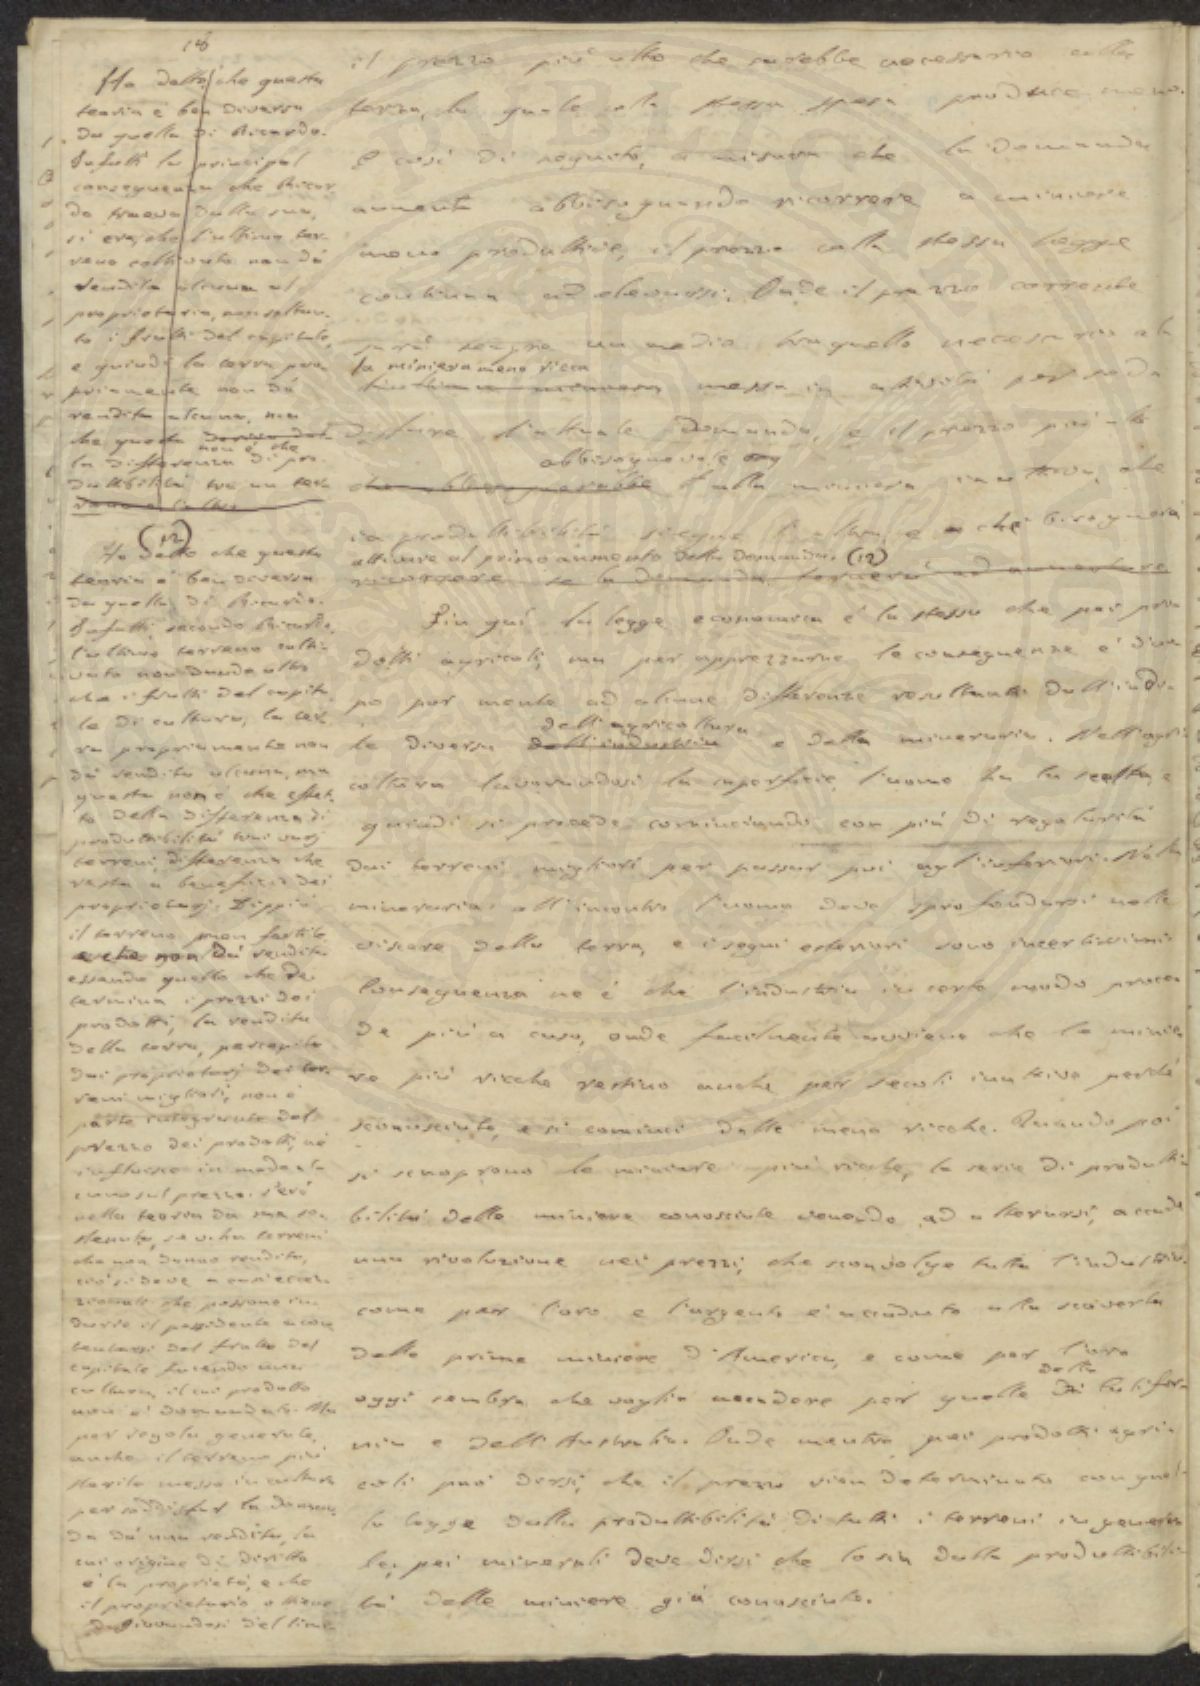 18
Ho detto che questa
teoria è ben diversa
da quella di Ricardo.
Infatti la principal
conseguenza che Ricar-
do traeva dalla sua,
si era, che l'ultimo ter-
reno coltivato non dà
rendita alcuna al
proprietario, ma soltan-
to i frutti del capitale,
e quindi la terra pro-
priamente non dà
rendita alcuna, ma
che questa
non è che
la differenza di pro-
duttibilità tra un ter-
(12)
Ho detto che questa
teoria è ben diversa
da quella di Ricardo.
Infatti, secondo Ricardo,
l'ultimo terreno colti-
vato non dando altro
che i frutti del capita-
le di cultura, la ter-
ra propriamente non
dà rendita alcuna, ma
questa non è che effet-
to della differenza di
produttibilità trai varj
terreni, differenza che
resta a beneficio dei
proprietarj. Dippiù
il terreno men fertile
e che non dà rendita
essendo quello che de-
termina i prezzi dei
prodotti, la rendita
della terra, percepita
dai proprietarj dei ter-
reni migliori, non è
parte integrante del
prezzo dei prodotti, nè
influisce in modo al-
cuno sul prezzo. Però
nella teoria da me so-
stenuta, se vi ha terreni
che non danno rendita,
ciò si deve a casi eccezi-
zionali che possono in-
durre il possidente a con-
tentarsi del frutto del
capitale facendo una
cultura, il cui prodotto
non è domandato. Ma
per regola generale,
anche il terreno più
sterile messo in cultura
per soddisfar la doman-
da dà una rendita, la
cui origine di diritto
è la proprietà, e che
il proprietario ottiene
giovandosi del limi-
il prezzo più alto che sarebbe necessario alla
terza, la quale colla stessa spesa produce meno.
E così di seguito, a misura che la domanda
aumenta abbisognando ricorrere a miniere
meno produttive, il prezzo colla stessa legge
continua ad elevarsi. Onde il prezzo corrente
sarà sempre un medio tra quello necessario alla
la miniera meno ricca
messa in attività per soddi-
disfare l'attuale domanda, e il prezzo più alto
abbisognevole
alla miniera inattiva, che
in produttibilità siegue l'ultima, e a che bisognerà
attivare al primo aumento della domanda. (12)
ricorrere se la domanda tornerà ad aumentare
Fin quì la legge economica è la stessa che pei pro-
dotti agricoli, ma per apprezzarne le conseguenze è d'uo-
po por mente ad alcune differenze resultanti dall'indo-
dell'agricoltura
le diversa dell'industria e della mineraria. Nell'agri-
coltura lavorandosi la superficie, l'uomo ha la scelta, e
quindi si procede cominciando con più di regolarità
dai terreni migliori per passar poi agl'inferiori. Nella
mineraria all'incontro l'uomo deve sprofondarsi nelle
viscere della terra, e i segni esteriori sono incertissimi.
Conseguenza ne è che l'industria in certo modo proce-
de più a caso, onde facilmente avviene che le minie-
re più ricche restino anche per secoli inattive perchè
sconosciute, e si cominci dalle meno ricche. Quando poi
si scuoprono le miniere più ricche, la serie di produtti-
bilità delle miniere conosciute venendo ad alterarsi, accade
una rivoluzione nei prezzi, che sconvolge tutta l'industria,
come per l'oro e l'argento è accaduto alla scoverta
delle prime miniere d'America, e come per l'oro
della
oggi sembra che voglia accadere per quelle di Califor-
nia e dell'Australia. Onde mentre pei prodotti agri-
coli può dirsi, che il prezzo vien determinato con quel-
la legge dalla produttibilità di tutti i terreni in genera-
le, pei minerali deve dirsi che lo sia dalla produttibili-
tà delle miniere già conosciute.